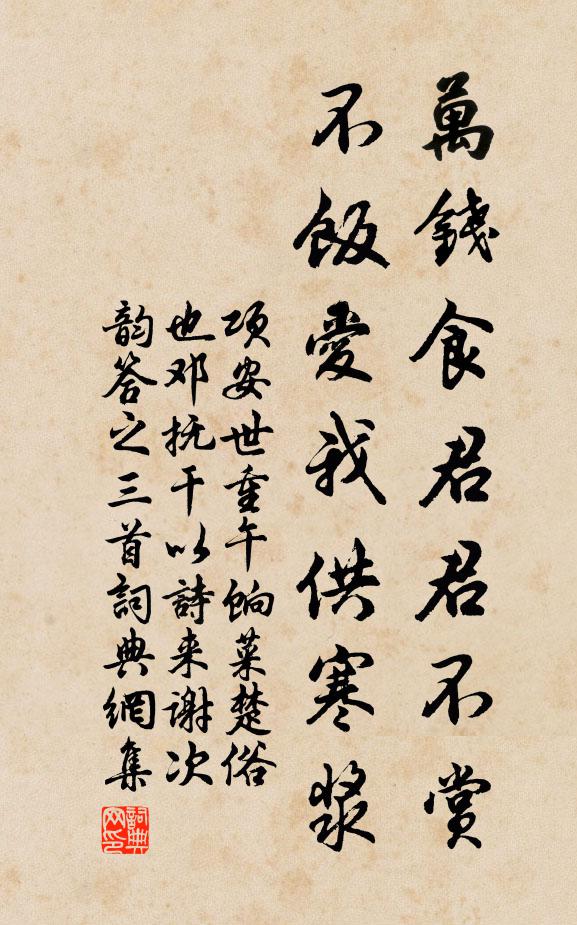 萬錢食君君不賞
不飯愛我供寒漿
项安世重午餉菜楚俗
也邓抚干以詩来谢次
韵答之三首詞典網集
詞典网印